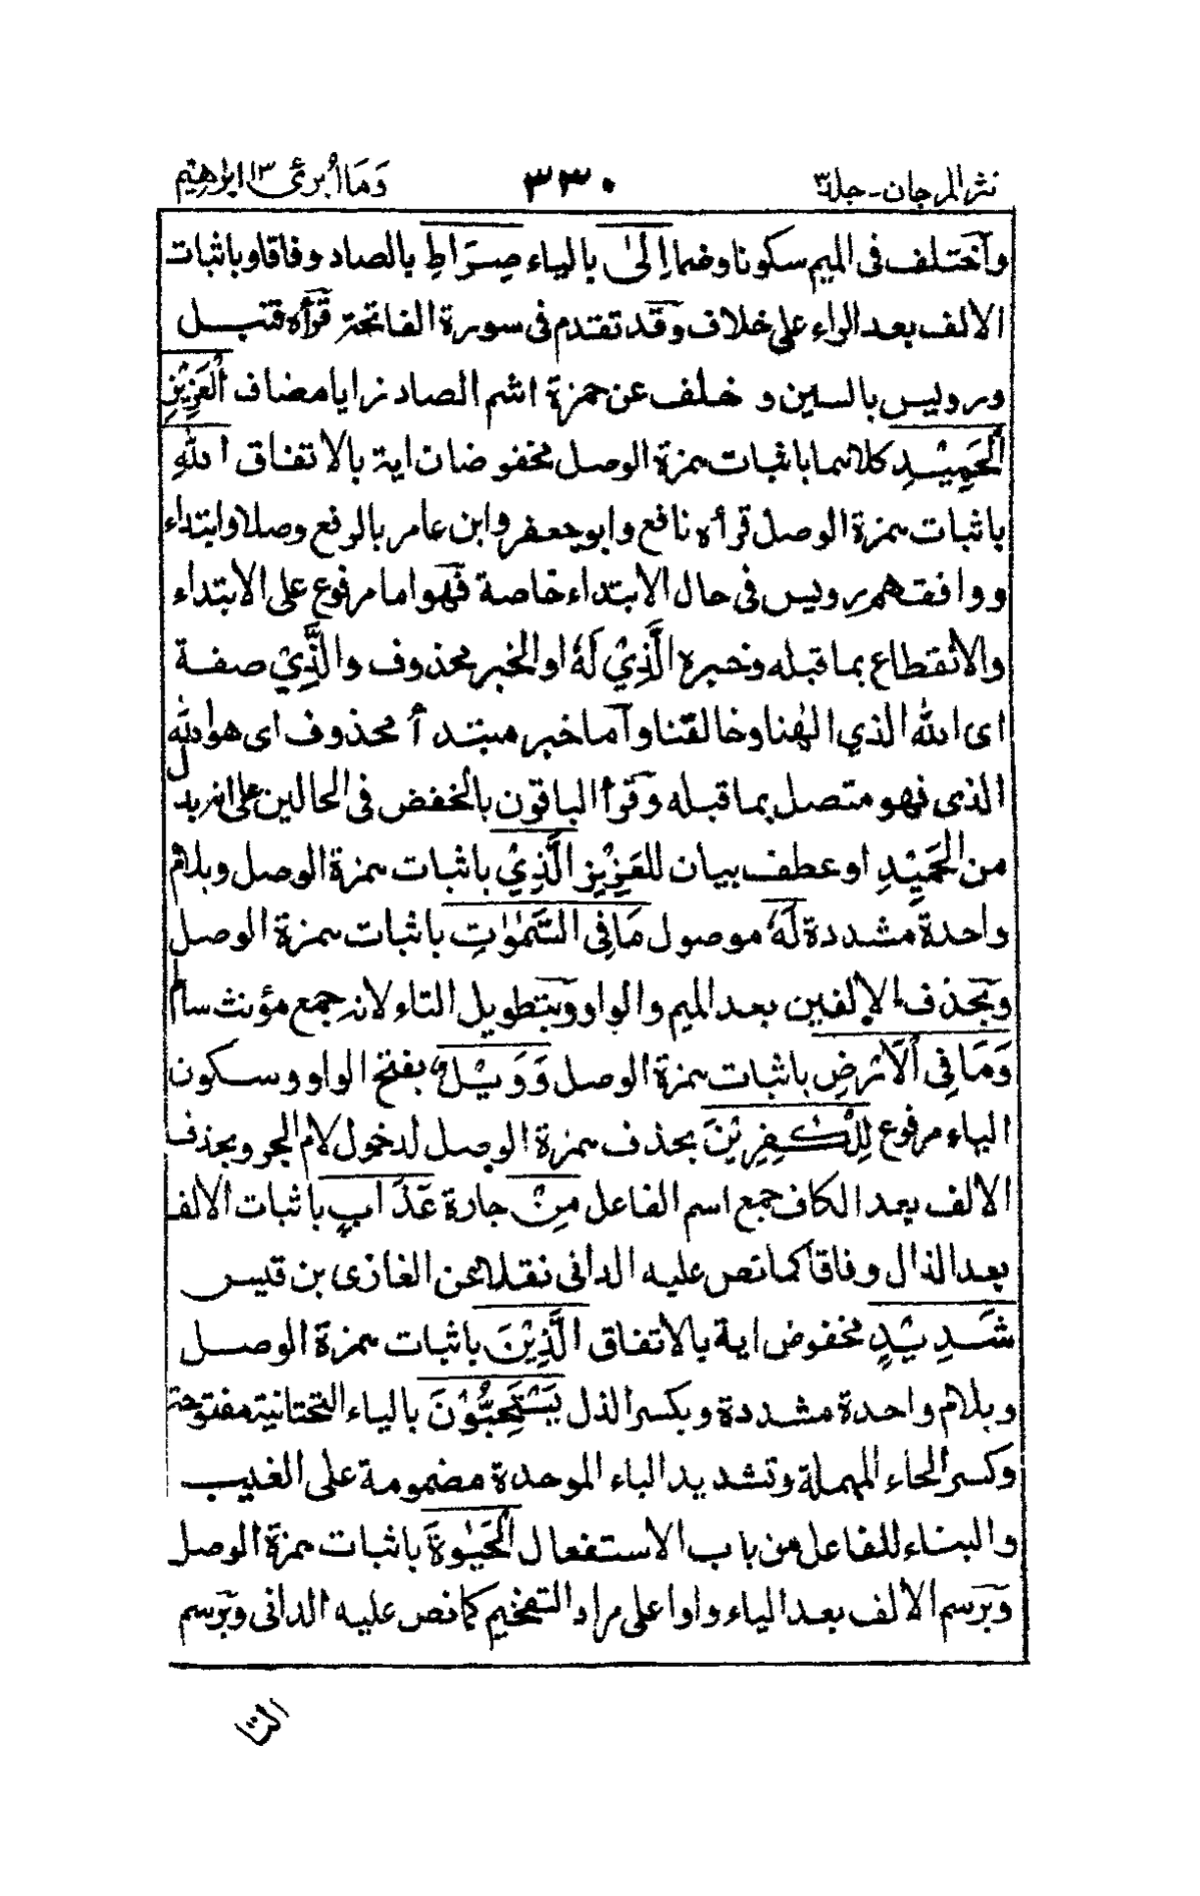 نثر المرجان - جلد٣ ٣٣٠ وَمَا أُبَرِّئُ ١٣ ابرٰهيم
واختلف فى الميم سكونا وضما اِلىٰ بالياء صِرَاطِ بالصاد وفاقا وباثبات
الالف بعد الراء على خلاف وقد تقدم فى سورة الفاتحة قرأه قنبل
ورويس بالسين و خلف عن حمزة اشم الصاد زايا مضاف الْعَزِيْزِ
الْحَمِيْدِ كلاهما باثبات همزة الوصل مخفوضان اية بالاتفاق اللهِ
باثبات همزة الوصل قرأه نافع وابوجعفر وابن عامر بالرفع وصلا وابتداء
ووافقهم رويس فى حال الابتداء خاصة فهو اما مرفوع على الابتداء
والانقطاع بما قبله وخبره الَّذِيْ لَهٗ او الخبر محذوف والَّذِيْ صفة
اى الله الذي الٰهنا وخالقنا وآما خبر مبتدأ محذوف اى هو الله
الذى فهو متصل بما قبله وقرأ الباقون بالخفض فى الحالين على انه بدل
من الْحَمِيْدِ او عطف بيان للعَزِيْزِ الَّذِيْ باثبات همزة الوصل وبلام
واحدة مشددة لَهٗ موصول مَا فِى السَّمٰوٰتِ باثبات همزة الوصل
وبحذف الالفين بعد الميم والواو وبتطويل التاء لانه جمع مؤنث سالم
وَمَا فِى الْاَرْضِ باثبات همزة الوصل وَوَيْلٌ بفتح الواو وسكون
الياء مرفوع لِلْكٰفِرِيْنَ بحذف همزة الوصل لدخول لام الجر وبحذف
الالف بعد الكاف جمع اسم الفاعل مِنْ جارة عَذَابٍ باثبات الالف
بعد الذال وفاقا كما نص عليه الدانى نقلا عن الغازى بن قيس
شَدِيْدٍ مخفوض اية بالاتفاق الَّذِيْنَ باثبات همزة الوصل
وبلام واحدة مشددة وبكسر الذل يَسْتَحِبُّوْنَ بالياء التحتانية مفتوحة
وكسر الحاء المهملة وتشديد الباء الموحدة مضمومة على الغيب
والبناء للفاعل من باب الاستفعال الْحَيٰوةَ باثبات همزة الوصل
وبرسم الالف بعد الياء واوا على مراد التفخيم كما نص عليه الدانى وبرسم
التا